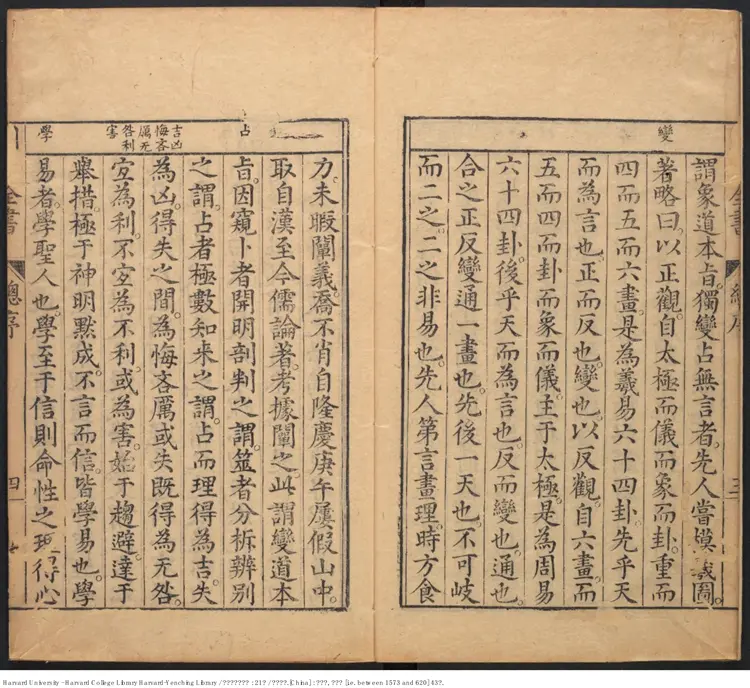 變
謂象道本旨獨變占無言者先人嘗著義圖
著略曰以正觀自太極而儀而象而卦重而
四而五而六畫是為羲易六十四卦先乎天
而為言也正而反也變也以反觀自六畫而
五而四而卦而象而儀主于太極是為周易
六十四卦後乎天而為言也反而變也通也
合之正反變通一畫也先後一天也不可岐
而二之二之非易也先人第言畫理時方食
三
占
吉凶
悔吝
厲无
咎利
害
學
力未暇闡義喬不肖自隆慶庚午屢假山中
取自漢至今儒論著考據闡之此謂變道本
旨因窺卜者開明剖判之謂筮者分析辨別
之謂占者極數知來之謂占而理得為吉失
為凶得失之間為悔吝厲或失既得為无咎
宜為利不宜為不利或為害始于趨避達于
舉措極于神明默成不言而信皆學易也學
易者學聖人也學至于信則命性之理得心
全書
總序
四
Harvard University - Harvard College Library Harvard-Yenching Library / ??????? : 21? / ????. [China] : ???, ??? [i.e. between 1573 and 620] 43?.